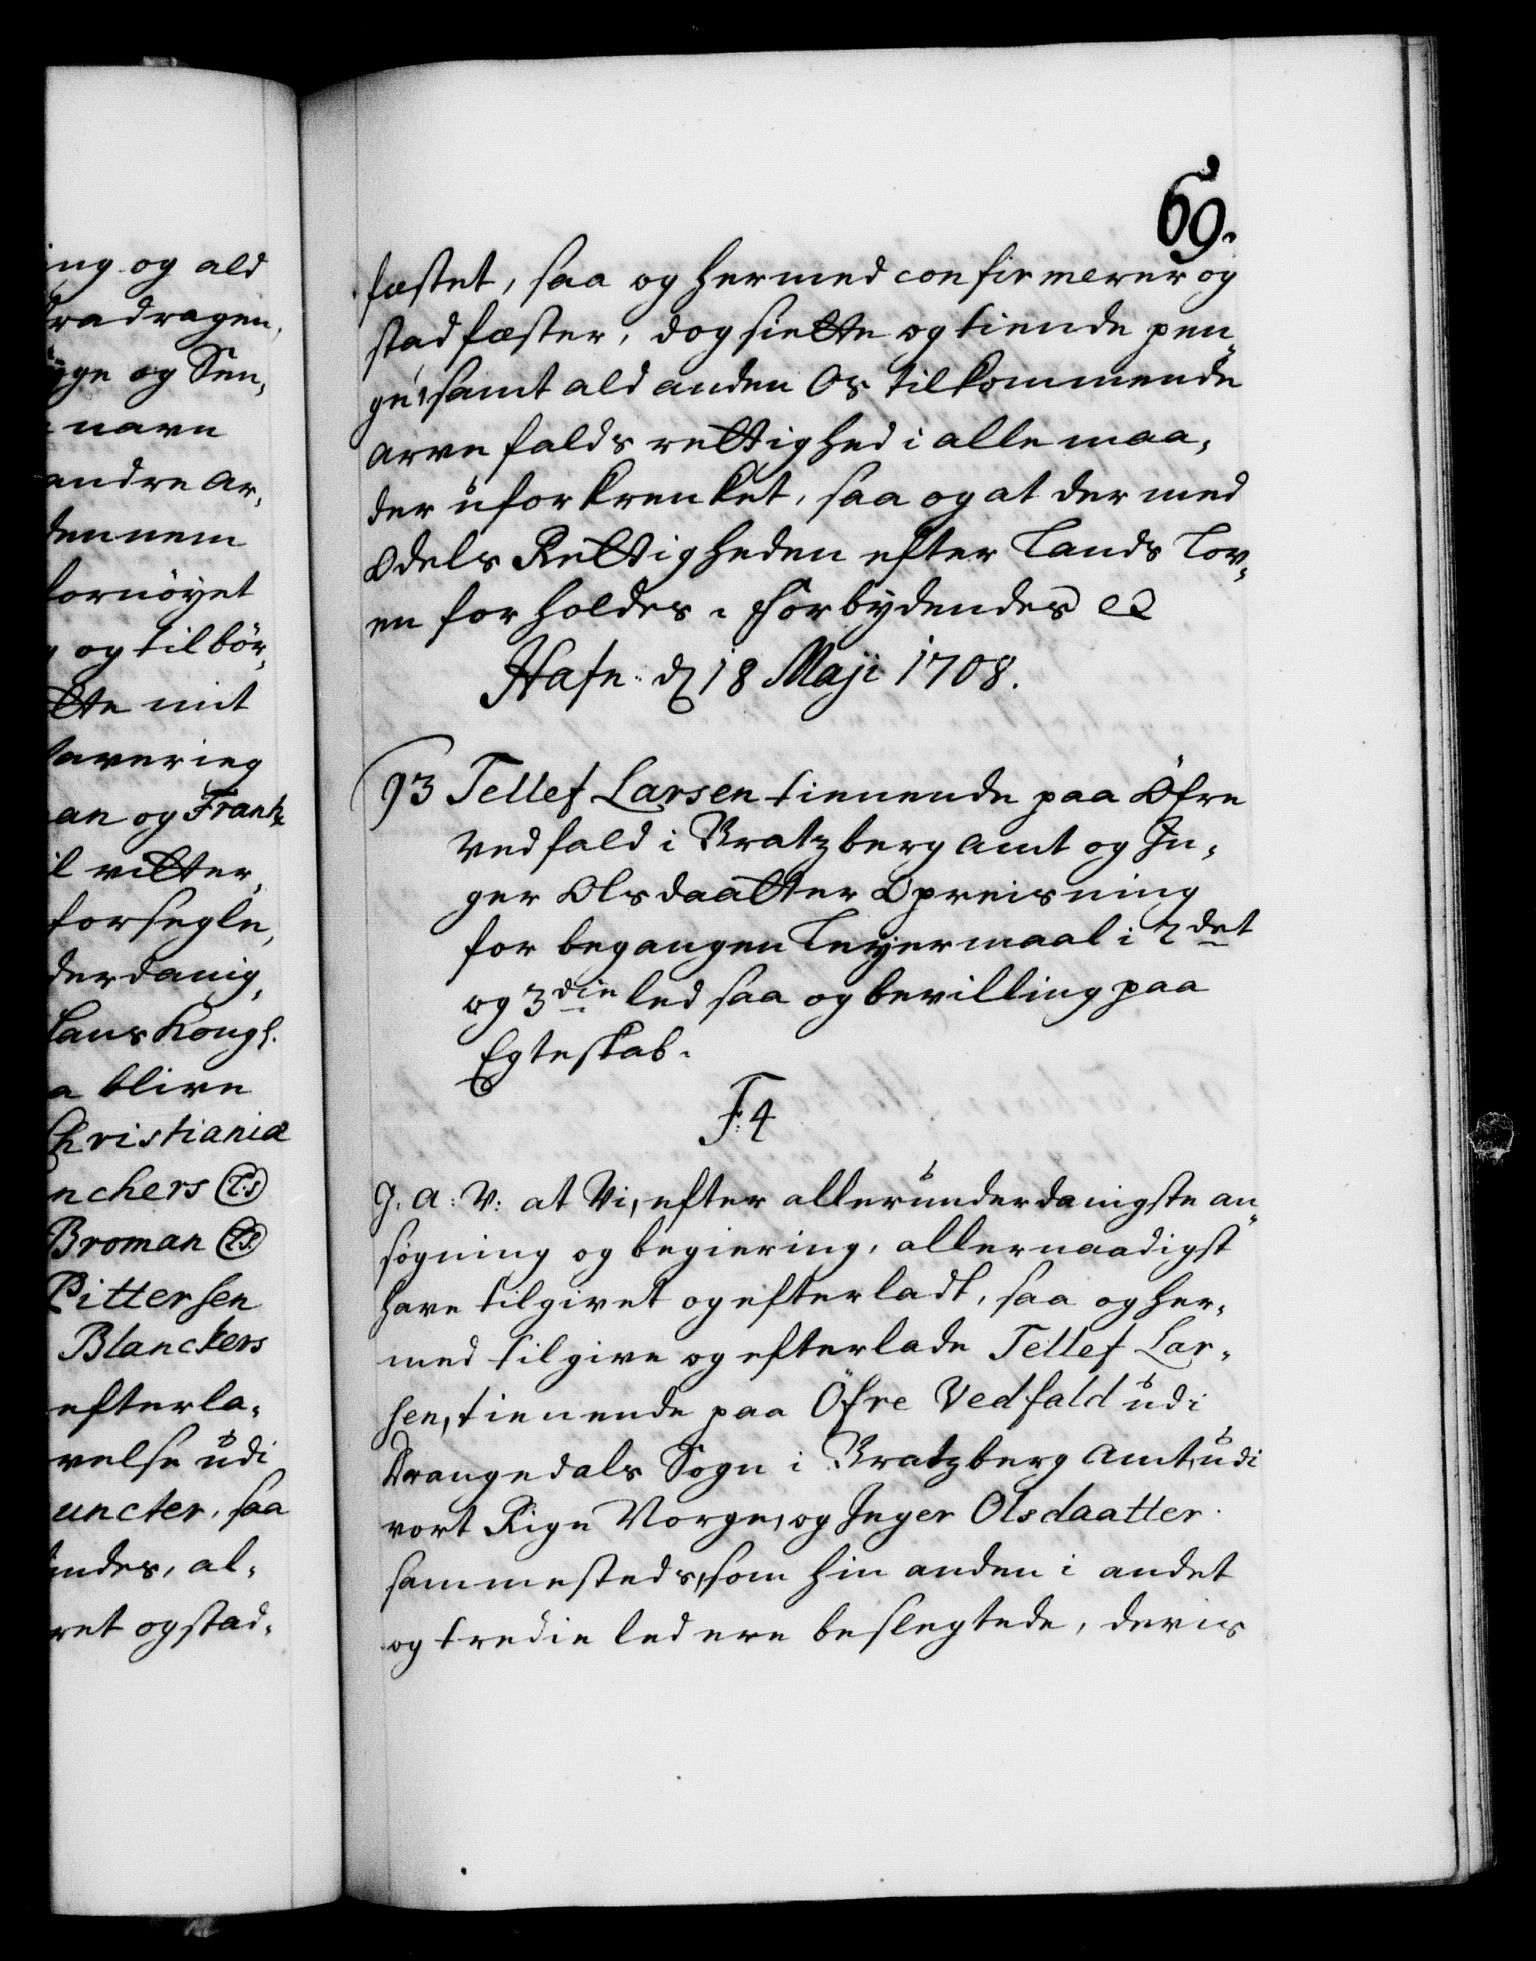 ing og ald
fradragen,
yge og Sen,
navn
andre Ar,
dennem
fornöyet
og tilbör,
ette mit
haver ieg
an og Frank,
l vitter,
forsegle,
derdanig,
hans Kongl.
a blive
Christiania
nchers (L.S)
Broman (L.S.)
Pittersen
Blanckers
efterla,
velse udi
uncter, saa
indes, al,
ret og stad,
69.
fæstet, saa og hermed confirmerer og
stadfæster, dog siette og tiende pen,
ge, samt ald anden Os tilkommende
arve falds rettighed i alle maa,
der uforkrenket, saa og at der med
Odels Rettigheden efter Lands Lov,
en forholdes. Forbydendes &
Hafn: d 18 Maji 1708.
93 Tellef Larsen tienende paa Öfre
Vedfald i Bratzberg Amt og In,
ger Olsdaatter Opreisning
for begangen Leyermaal i 2det
og 3die led saa og bevilling paa
Egteskab.
F: 4
G. A: V: at Vi, efter allerunderdanigste an,
søgning og begiering, allernaadigst
have tilgivet og efterladt, saa og her,
med tilgive og efterlade Tellef Lar,
sen, tienende paa Öfre Vedfald udi
Drangedals Sogn i Bratzberg Amt, udi
vort Rige Norge, og Inger Olsdaatter
sammesteds, som hin anden i andet
og tredie led ere beslegtede, deris